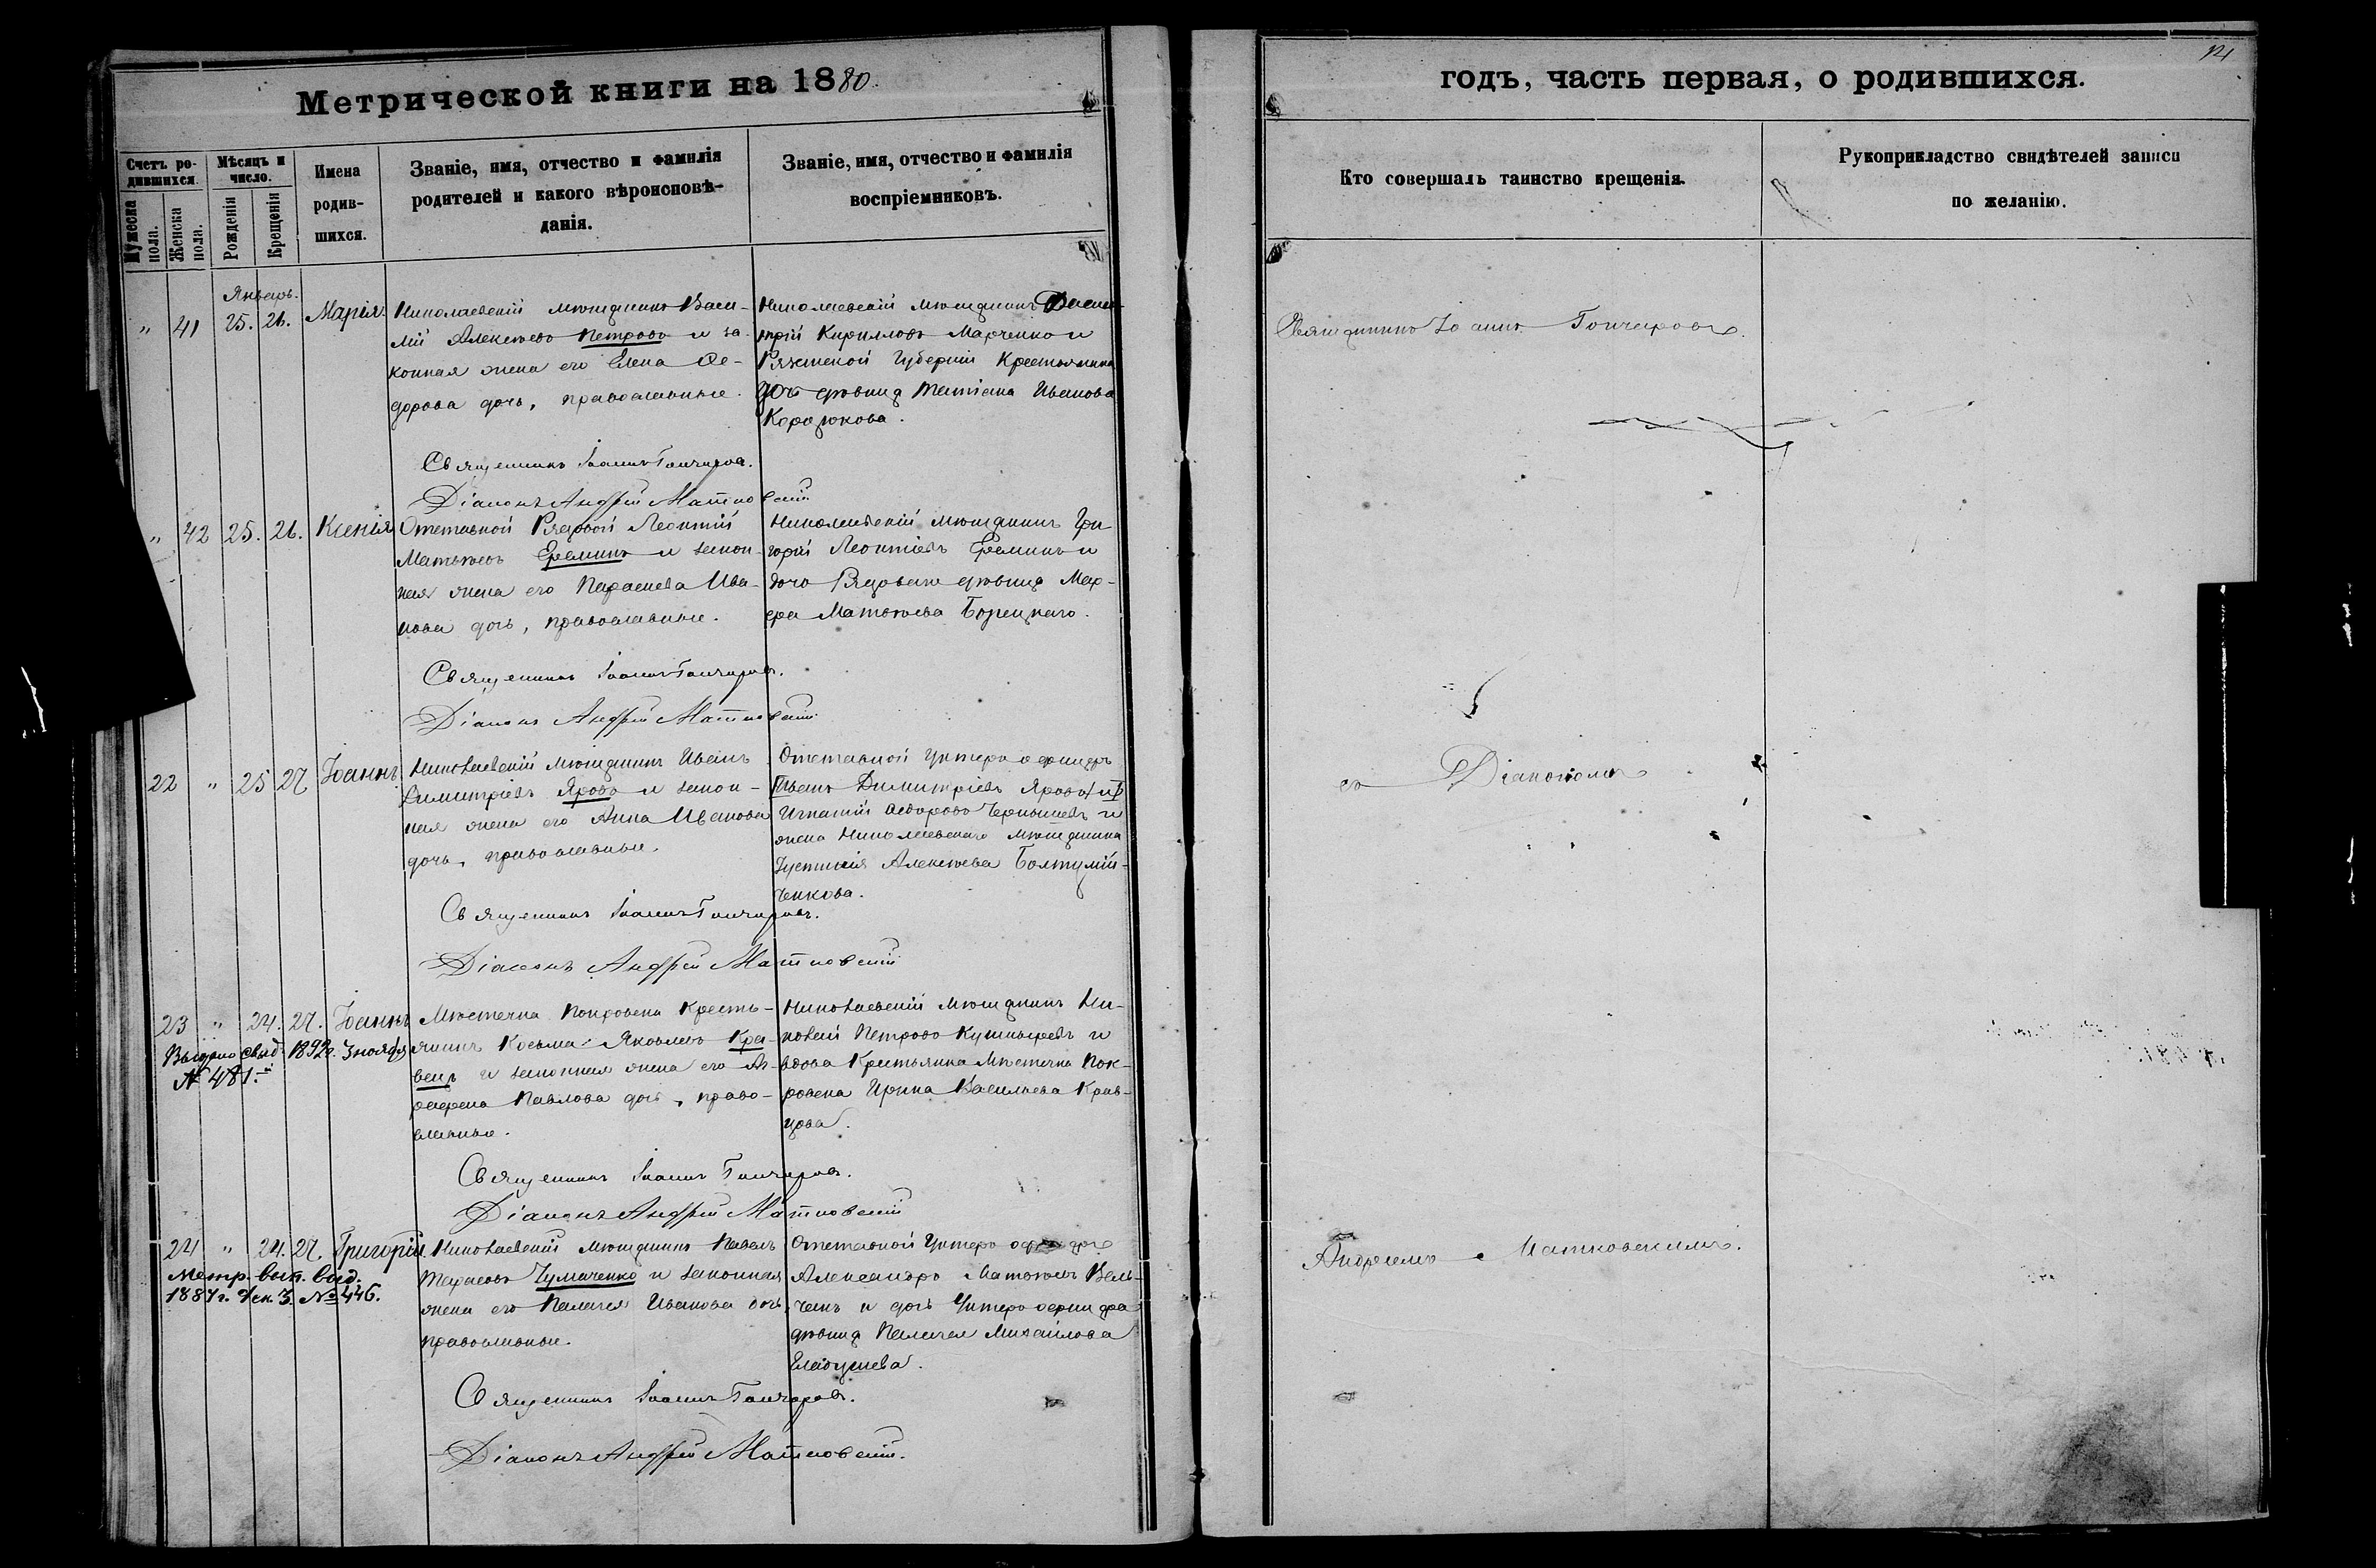 Метрической книги на 1880.
Счетъ ро-
дившихся.
Мѣсяцъ и
число.
Мужеска
пола.
Женска
пола.
Рожденія
Крещенія
Имена
родив-
шихся.
Званіе, имя, отчество и фамилія
родителей и какого вѣроисповѣ-
данія.
Званіе, имя, отчество и фамилія
воспріемниковъ.
Январь.
" 41 25. 26. Марія.
Николаевскій мѣщанинъ Васи-
лій Алексѣевъ Петровъ и за-
конная жена его Елена Ѳе-
дорова дочь, православные.
Николаевскій мѣщанинъ
трій Кирилловъ Марченко и
Губерніи Крестьянина
дочь дѣвица Татіана Иванова
Священникъ Іоаннъ Гончаровъ.
Діаконъ Андрей Матковскій
" 42 25. 26. Ксенія
Отставной Рядовой Леонтій
Матвѣевъ Ереминъ и закон-
ная жена его Параскева Ива-
нова дочь, православные.
Николаевскій мѣщанинъ Гри-
горій Леонтіевъ Ереминъ и
дочь Рядоваго дѣвица Мар-
фа Матвѣева Борецкаго.
Священникъ Іоаннъ Гончаровъ.
Діаконъ Андрей Матковскій
22 " 25 27 Іоаннъ
Николаевскій мѣщанинъ Иванъ
Димитріевъ Яровъ и закон-
ная жена его Анна Иванова
дочь, православные.
Отставной Унтеръ офицеръ
Иванъ Димитріевъ Яровъ и
Игнатій Ѳедоровъ Чернышевъ и
жена Николаевскаго мѣщанина
Іустинія Алексѣева
ченкова.
Священникъ Іоаннъ Гончаровъ.
Діаконъ Андрей Матковскій
23 " 24. 27. Іоаннъ
Выдано свид. 1892г. 3 ноября
№ 481.
Мѣстечка Покровска Кресть-
янинъ Косьма Яковлевъ Кра-
вецъ и законная жена его Аг-
Павлова дочь, право-
славные.
Николаевскій мѣщанинъ Ни-
Петровъ и
вдова Крестьянка Мѣстечка Пок-
ровска Ирина Васильева Крав-
цова.
Священникъ Іоаннъ Гончаровъ.
Діаконъ Андрей Матковскій
24 " 24. 27. Григорій
Метр. вып. выд.
1887г. Дек. 3. № 446.
Николаевскій мѣщанинъ Павелъ
Тарасовъ Чумаченко и законная
жена его Пелагея Иванова дочь,
православные.
Отставной Унтеръ офицеръ
Александръ Матвѣевъ Вель-
чекъ и дочь Унтеръ офицера
дѣвица Пелагея Михайлова
Священникъ Іоаннъ Гончаровъ.
Діаконъ Андрей Матковскій.
годъ, часть первая, о родившихся.
Кто совершалъ таинство крещенія.
Рукоприкладство свидѣтелей записи
по желанію.
Священникъ Іоаннъ Гончаровъ.
съ Діакономъ
Андреемъ Матковскимъ.